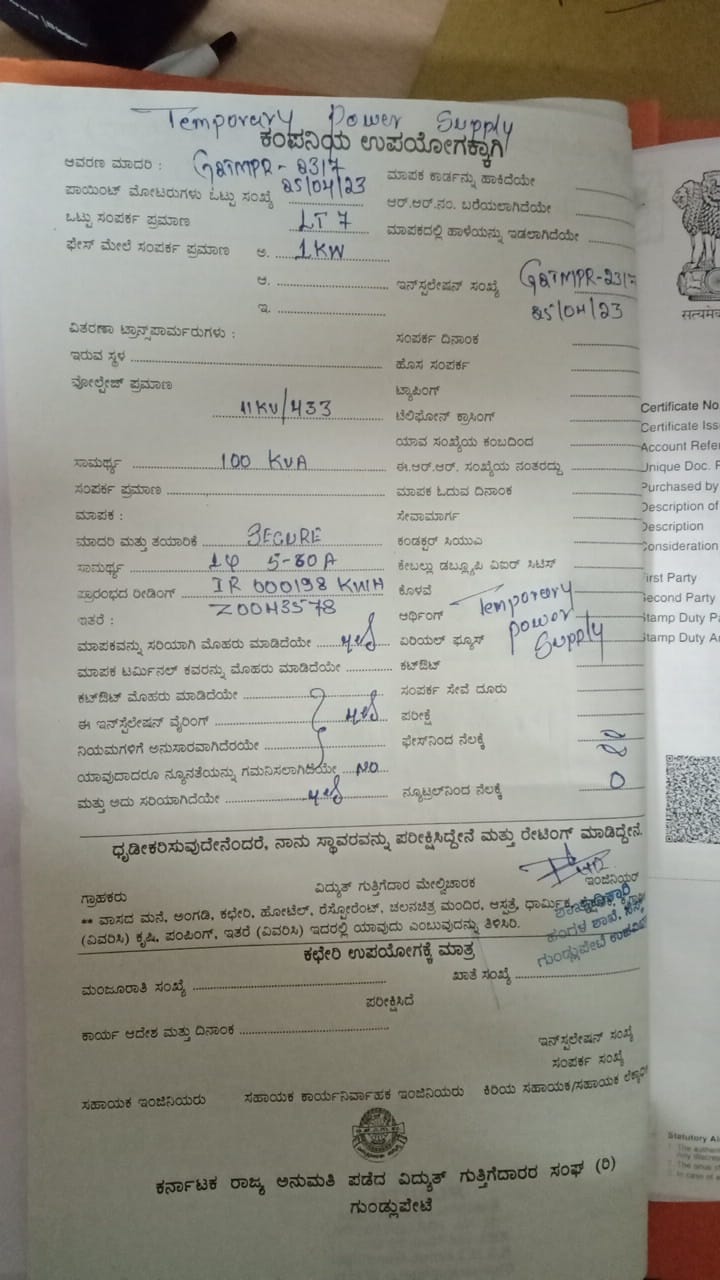 Temporary Power Supply
ಕಂಪನಿಯ ಉಪಯೋಗಕ್ಕಾಗಿ
ಆವರಣ ಮಾದರಿ : GBTMPR-23/7 ಮಾಪಕ ಕಾರ್ಡನ್ನು ಹಾಕಿದೆಯೇ
ಪಾಯಿಂಟ್ ಮೋಟರುಗಳು ಒಟ್ಟು ಸಂಖ್ಯೆ 25/04/23 ಆರ್.ಆರ್.ನಂ. ಬರೆಯಲಾಗಿದೆಯೇ
ಒಟ್ಟು ಸಂಪರ್ಕ ಪ್ರಮಾಣ LT 7 ಮಾಪಕದಲ್ಲಿ ಹಾಳೆಯನ್ನು ಇಡಲಾಗಿದೆಯೇ
ಫೇಸ್ ಮೇಲೆ ಸಂಪರ್ಕ ಪ್ರಮಾಣ ಅ. 1KW
ಆ. ಇನ್‌ಸ್ಪಲೇಷನ್ ಸಂಖ್ಯೆ GBTMPR-23/7
ಇ. 25/04/23
ವಿತರಣಾ ಟ್ರಾನ್ಸ್‌ಪಾರ್ಮರುಗಳು : ಸಂಪರ್ಕ ದಿನಾಂಕ
ಇರುವ ಸ್ಥಳ ಹೊಸ ಸಂಪರ್ಕ
ವೋಲ್ಟೇಜ್ ಪ್ರಮಾಣ ಟ್ಯಾಪಿಂಗ್
11KV/433 ಟೆಲಿಫೋನ್ ಕ್ರಾಸಿಂಗ್
ಯಾವ ಸಂಖ್ಯೆಯ ಕಂಬದಿಂದ
ಸಾಮರ್ಥ್ಯ 100 KVA ಈ.ಆರ್.ಆರ್. ಸಂಖ್ಯೆಯ ನಂತರದ್ದು
ಸಂಪರ್ಕ ಪ್ರಮಾಣ ಮಾಪಕ ಓದುವ ದಿನಾಂಕ
ಮಾಪಕ : ಸೇವಾಮಾರ್ಗ
ಮಾದರಿ ಮತ್ತು ತಯಾರಿಕೆ SECURE ಕಂಡಕ್ಟರ್ ಸಿಯುಎ
ಸಾಮರ್ಥ್ಯ 1φ 5-30A ಕೇಬಲ್ಲು ಡಬ್ಲ್ಯೂಪಿ ವಿಐರ್ ಸಿಟಿಸ್
ಪ್ರಾರಂಭದ ರೀಡಿಂಗ್ IR 000198 KWH ಕೊಳವೆ
ಇತರೆ : Z0043578 ಆರ್ಥಿಂಗ್ Temporary
ಮಾಪಕವನ್ನು ಸರಿಯಾಗಿ ಮೊಹರು ಮಾಡಿದೆಯೇ yes ಏರಿಯಲ್ ಫ್ಯೂಸ್ Power Supply
ಮಾಪಕ ಟರ್ಮಿನಲ್ ಕವರನ್ನು ಮೊಹರು ಮಾಡಿದೆಯೇ ಕಟ್‌ಔಟ್
ಕಟ್‌ಔಟ್ ಮೊಹರು ಮಾಡಿದೆಯೇ ಸಂಪರ್ಕ ಸೇವೆ ದೂರು
ಈ ಇನ್‌ಸ್ಟಲೇಷನ್ ವೈರಿಂಗ್ yes ಪರೀಕ್ಷೆ
ನಿಯಮಗಳಿಗೆ ಅನುಸಾರವಾಗಿದೆರಯೇ ಫೇಸ್‌ನಿಂದ ನೆಲಕ್ಕೆ
ಯಾವುದಾದರೂ ನ್ಯೂನತೆಯನ್ನು ಗಮನಿಸಲಾಗಿದೆಯೇ NO
ಮತ್ತು ಅದು ಸರಿಯಾಗಿದೆಯೇ yes ನ್ಯೂಟ್ರಲ್‌ನಿಂದ ನೆಲಕ್ಕೆ 0
ಧೃಡೀಕರಿಸುವುದೇನೆಂದರೆ, ನಾನು ಸ್ಥಾವರವನ್ನು ಪರೀಕ್ಷಿಸಿದ್ದೇನೆ ಮತ್ತು ರೇಟಿಂಗ್ ಮಾಡಿದ್ದೇನೆ.
ಗ್ರಾಹಕರು ವಿದ್ಯುತ್ ಗುತ್ತಿಗೆದಾರ ಮೇಲ್ವಿಚಾರಕ ಇಂಜಿನಿಯರ್
** ವಾಸದ ಮನೆ, ಅಂಗಡಿ, ಕಛೇರಿ, ಹೋಟೆಲ್, ರೆಸ್ಟೋರೆಂಟ್, ಚಲನಚಿತ್ರ ಮಂದಿರ, ಆಸ್ಪತ್ರೆ, ಧಾರ್ಮಿಕ
(ವಿವರಿಸಿ) ಕೃಷಿ, ಪಂಪಿಂಗ್, ಇತರೆ (ವಿವರಿಸಿ) ಇದರಲ್ಲಿ ಯಾವುದು ಎಂಬುವುದನ್ನು ತಿಳಿಸಿರಿ.
ಶಾಖಾಧಿಕಾರಿ
ಹಂಗಳ ಶಾಖೆ
ಗುಂಡ್ಲುಪೇಟೆ
ಕಛೇರಿ ಉಪಯೋಗಕ್ಕೆ ಮಾತ್ರ
ಮಂಜೂರಾತಿ ಸಂಖ್ಯೆ ಖಾತೆ ಸಂಖ್ಯೆ
ಪರೀಕ್ಷಿಸಿದೆ
ಕಾರ್ಯ ಆದೇಶ ಮತ್ತು ದಿನಾಂಕ
ಇನ್‌ಸ್ಪಲೇಷನ್ ಸಂಖ್ಯೆ
ಸಂಪರ್ಕ ಸಂಖ್ಯೆ
ಸಹಾಯಕ ಇಂಜಿನಿಯರು ಸಹಾಯಕ ಕಾರ್ಯನಿರ್ವಾಹಕ ಇಂಜಿನಿಯರು ಕಿರಿಯ ಸಹಾಯಕ/ಸಹಾಯಕ
ಕರ್ನಾಟಕ ರಾಜ್ಯ ಅನುಮತಿ ಪಡೆದ ವಿದ್ಯುತ್ ಗುತ್ತಿಗೆದಾರರ ಸಂಘ (ರಿ)
ಗುಂಡ್ಲುಪೇಟೆ
Certificate No.
Certificate Iss
Account Refe
Unique Doc. R
Purchased by
Description of
Description
Consideration
First Party
Second Party
Stamp Duty Pa
Stamp Duty A
Statutory Al